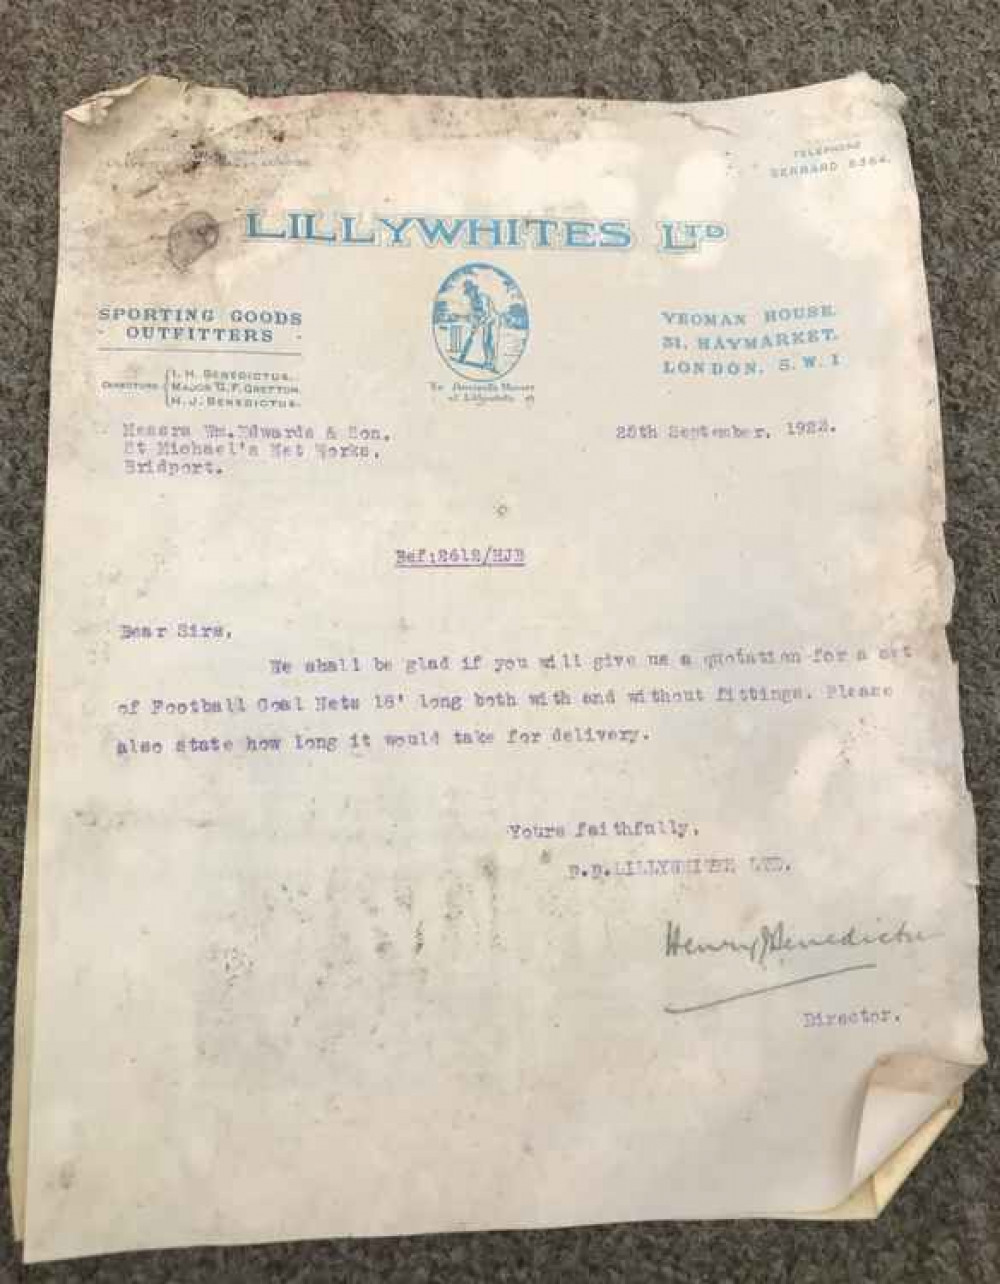 TELEPHONE
GERRARD 6364.
LILLYWHITES LTD
SPORTING GOODS
OUTFITTERS
DIRECTORS
I. H. BENEDICTUS.
MAJOR G. F. GRETTON.
H. J. BENEDICTUS.
YEOMAN HOUSE.
31, HAYMARKET.
LONDON, S.W.1
Messrs Wm. Edwards & Son,
St Michael's Net Works,
Bridport.
September, 1922.
Ref:2612/HJB
Dear Sirs,
We shall be glad if you will give us a quotation for a set
of Football Goal Nets 18' long both with and without fittings. Please
also state how long it would take for delivery.
Yours faithfully,
p.p.LILLYWHITES LTD.
Henry J Benedictus
Director.